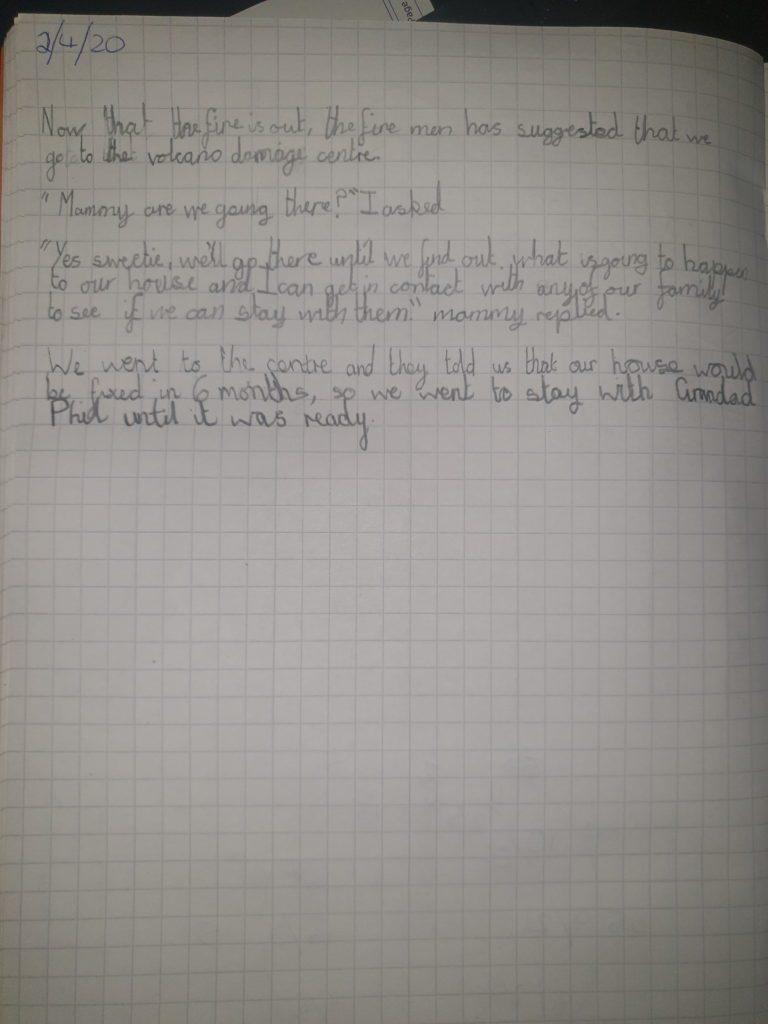 page
2/4/20
Now that the fire is out, the fire men has suggested that we
go to the volcano damage centre.
"Mammy are we going there?" I asked
"Yes sweetie, we'll go there until we find out what is going to happen
to our house and I can get in contact with any of our family
to see if we can stay with them." mammy replied.
We went to the centre and they told us that our house would
be fixed in 6 months, so we went to stay with Grandad
Phil until it was ready.